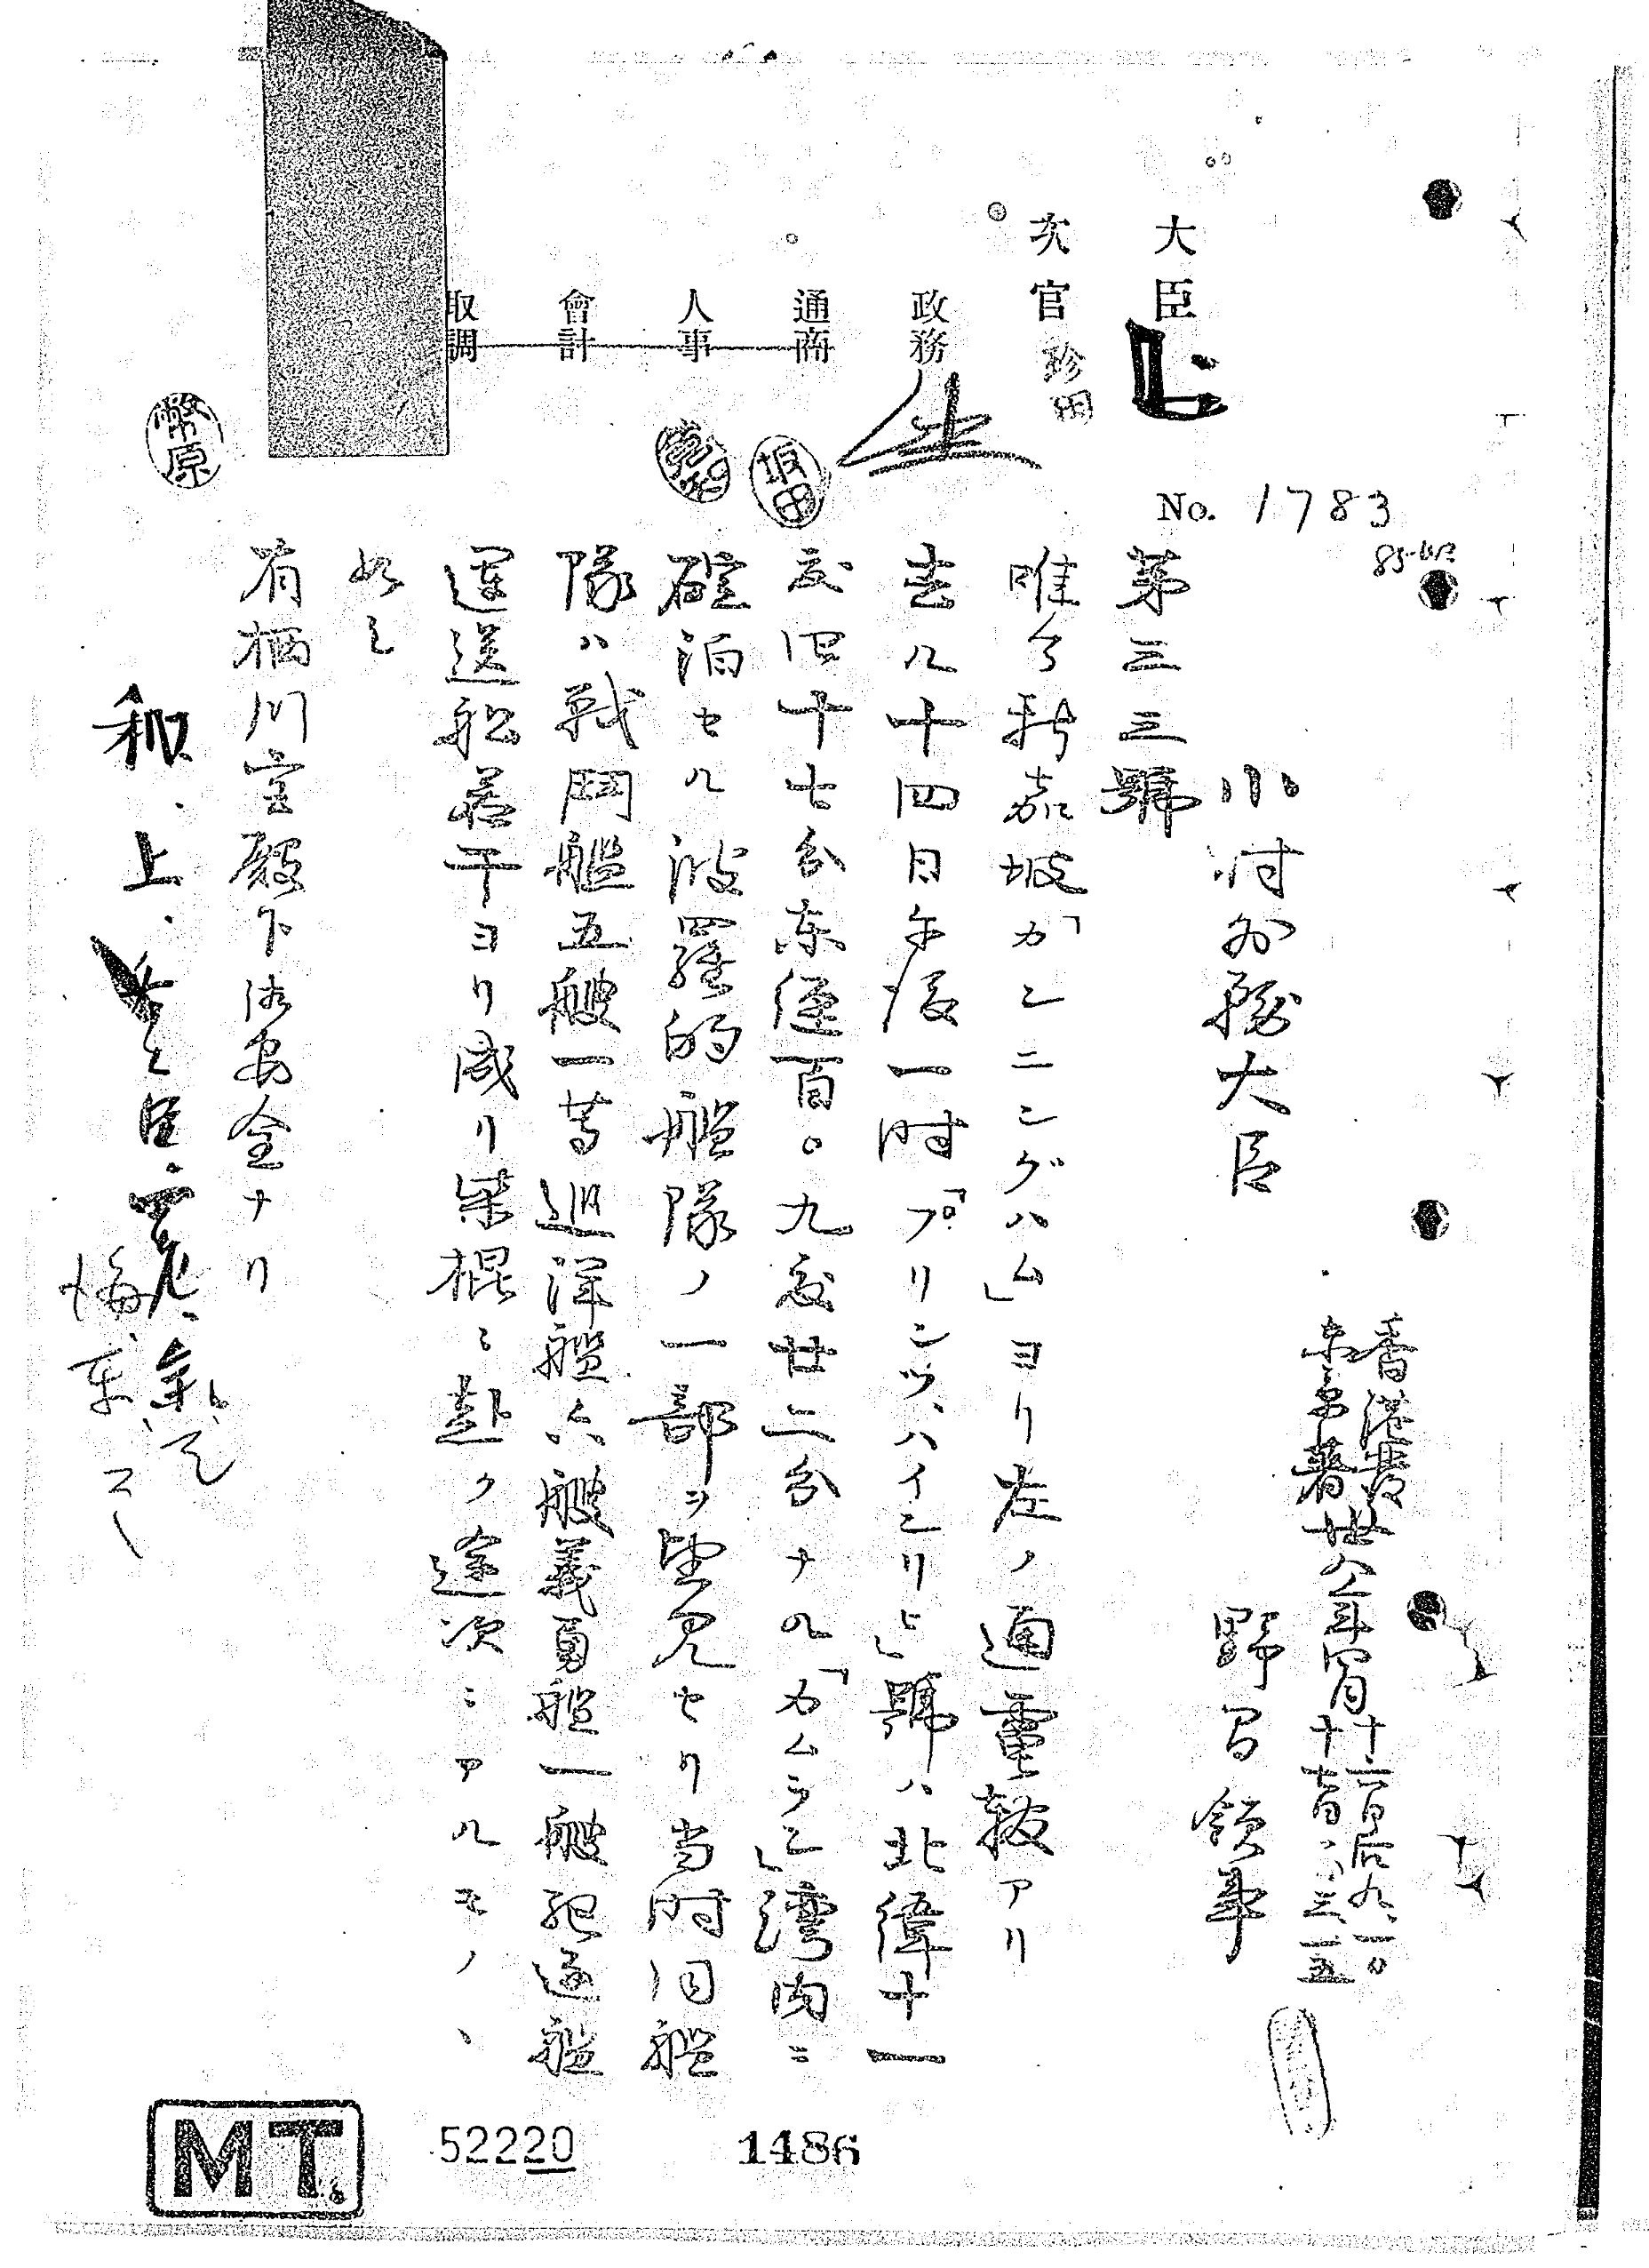 大臣
次官 珍田
政務
通商
人事
會計
取調
坂田
幣原
No. 1783
香港發 卅八年四月十六日后九、一〇
東京着 十七日 三、一五
小村外務大臣
野間領事
第三三號
唯今新嘉坡「カンニングハム」ヨリ左ノ通電報アリ
去ル十四日午後一時「プリンツハインリヒ」號ハ北緯十一
度四十七分東經百〇九度廿二分ナル「カムラン」湾内ニ
碇泊セル波羅的艦隊ノ一部ヲ望見セリ当時同艦
隊ハ戦鬥艦五艘一等巡洋艦六艘義勇艦一艘駆逐艦
運送船若干ヨリ成リ柴棍ニ赴ク途次ニアルモノヽ
如シ
有栖川宮殿下御安全ナリ
上
MT.
52220
1486